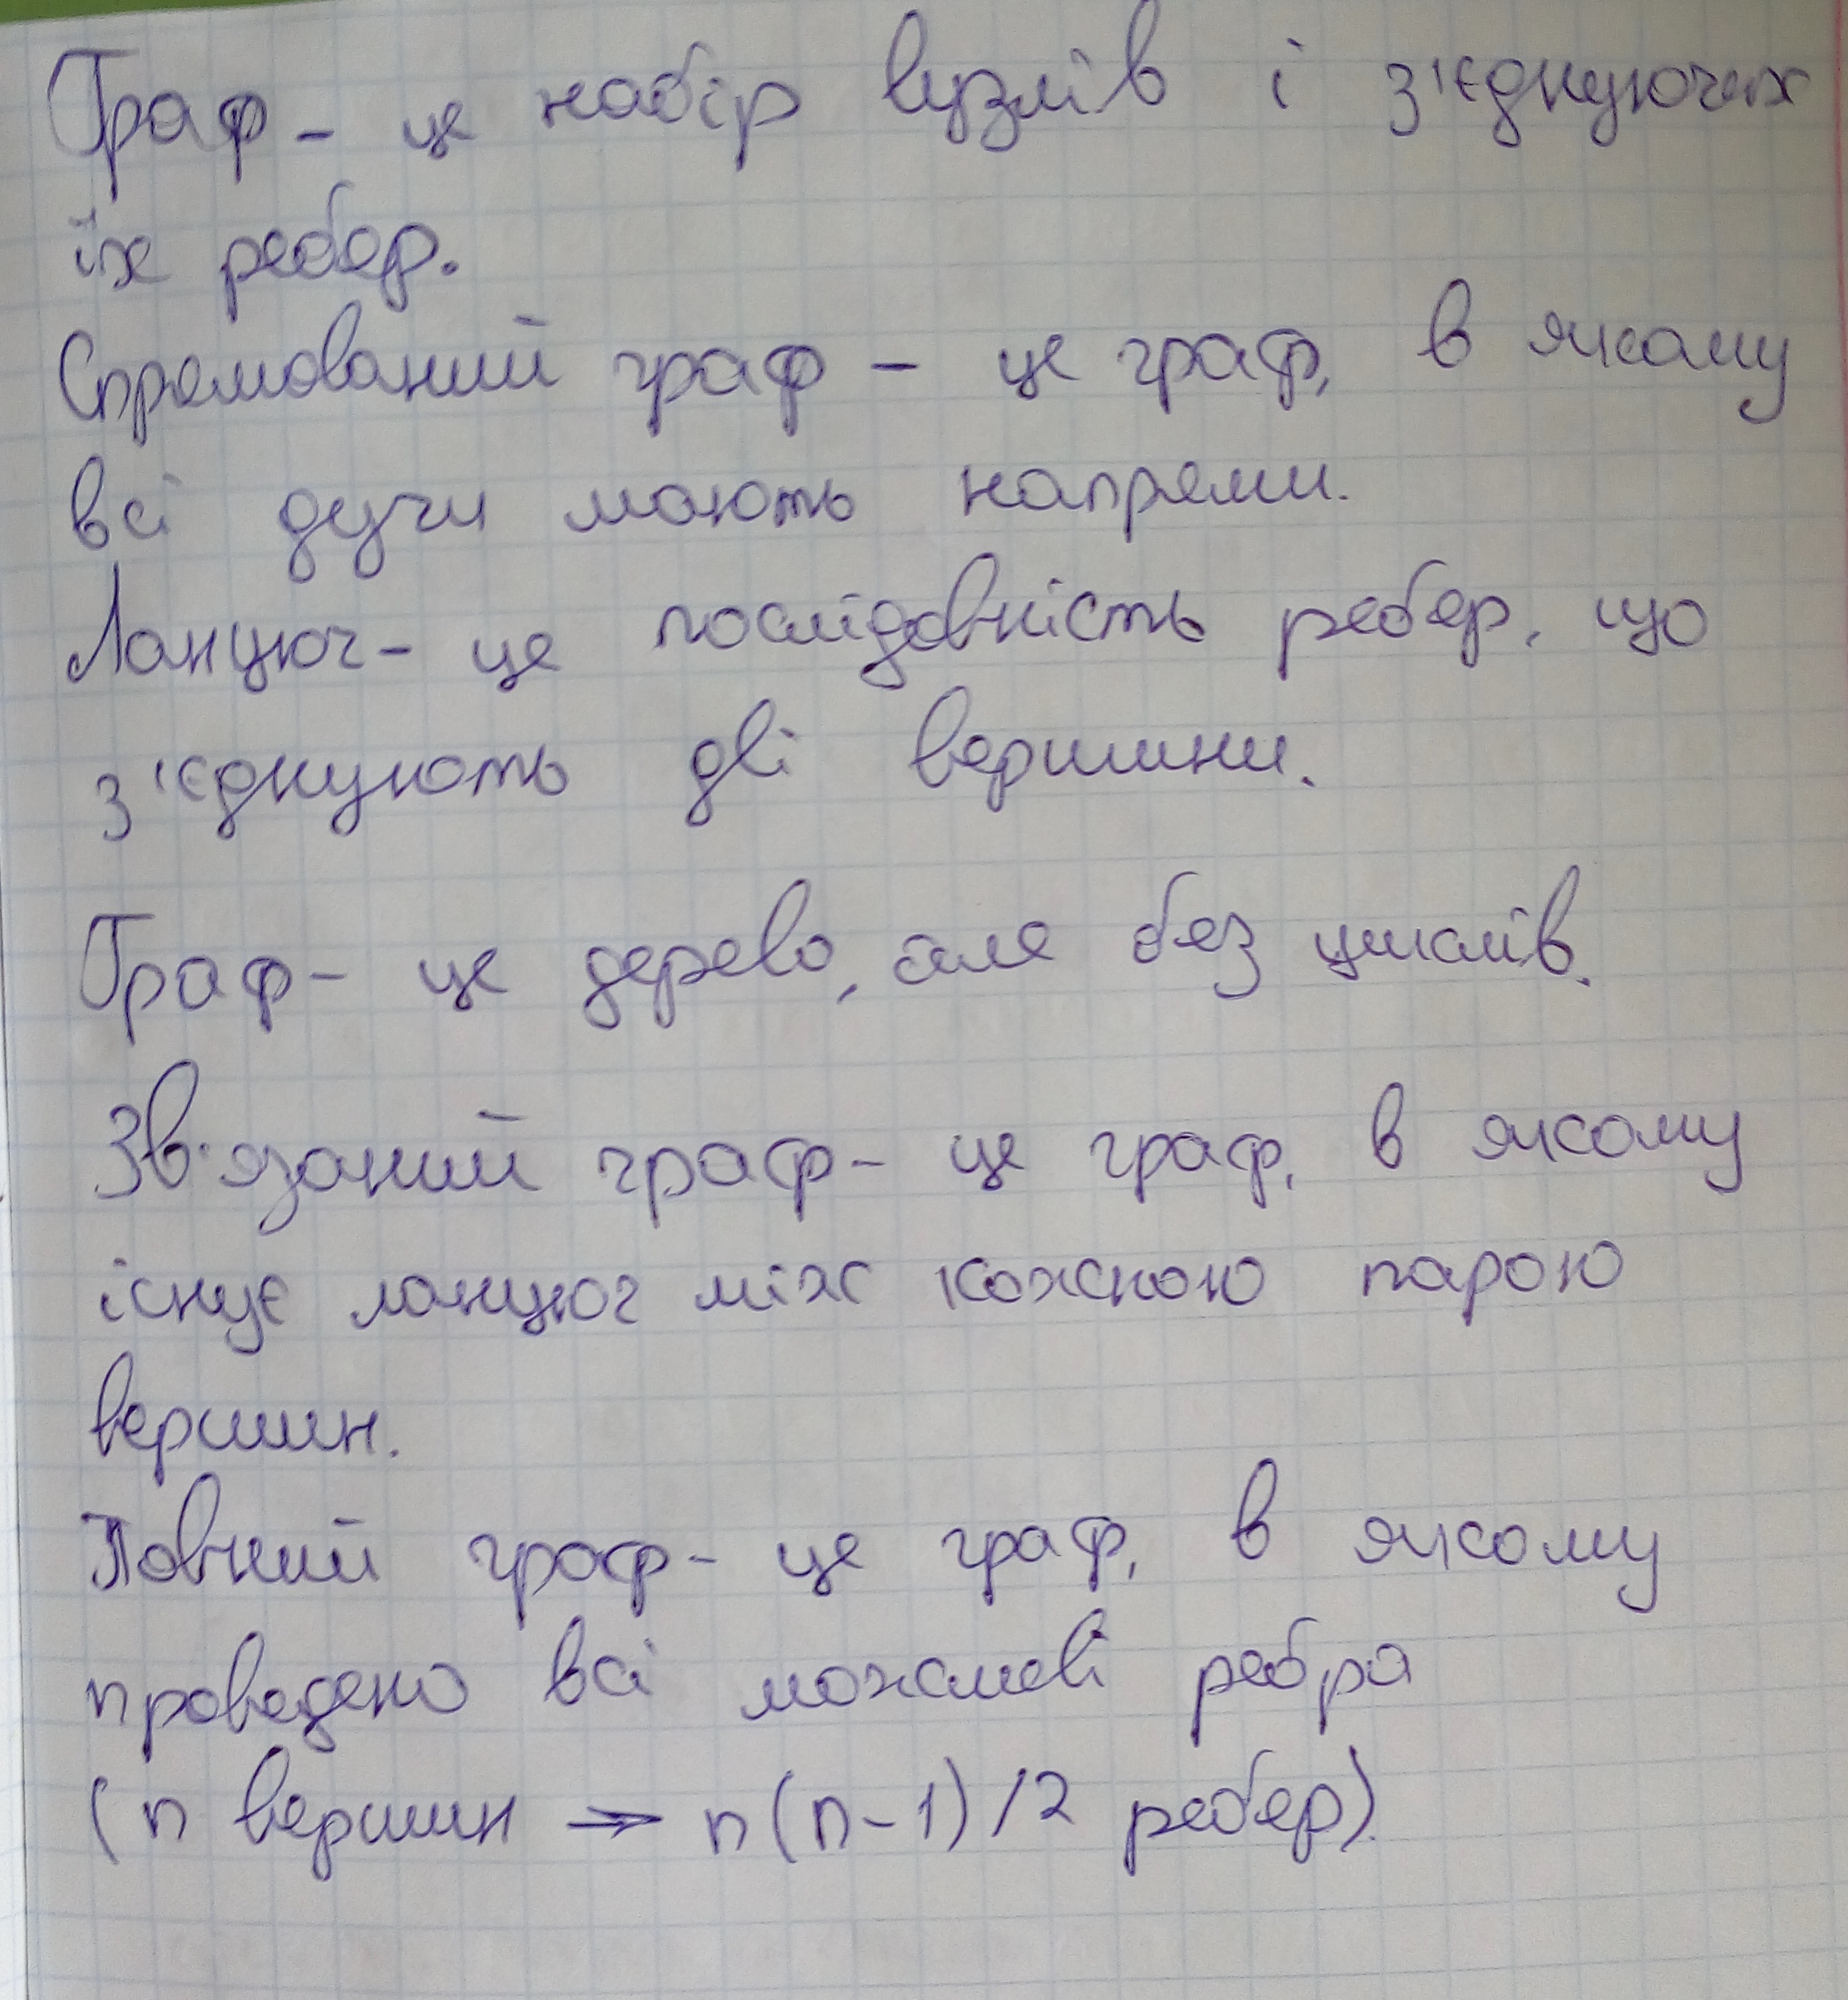 Граф - це набір вузлів і з'єднуючих
їх ребер.
Спрямований граф - це граф, в якому
всі дуги мають напрями.
Ланцюг - це послідовність ребер, що
з'єднують дві вершини.
Граф - це дерево, але без циклів.
Зв'язаний граф - це граф, в якому
існує ланцюг між кожною парою
вершин.
Повний граф - це граф, в якому
проведено всі можливі ребра
(n вершин → n(n-1)/2 ребер).